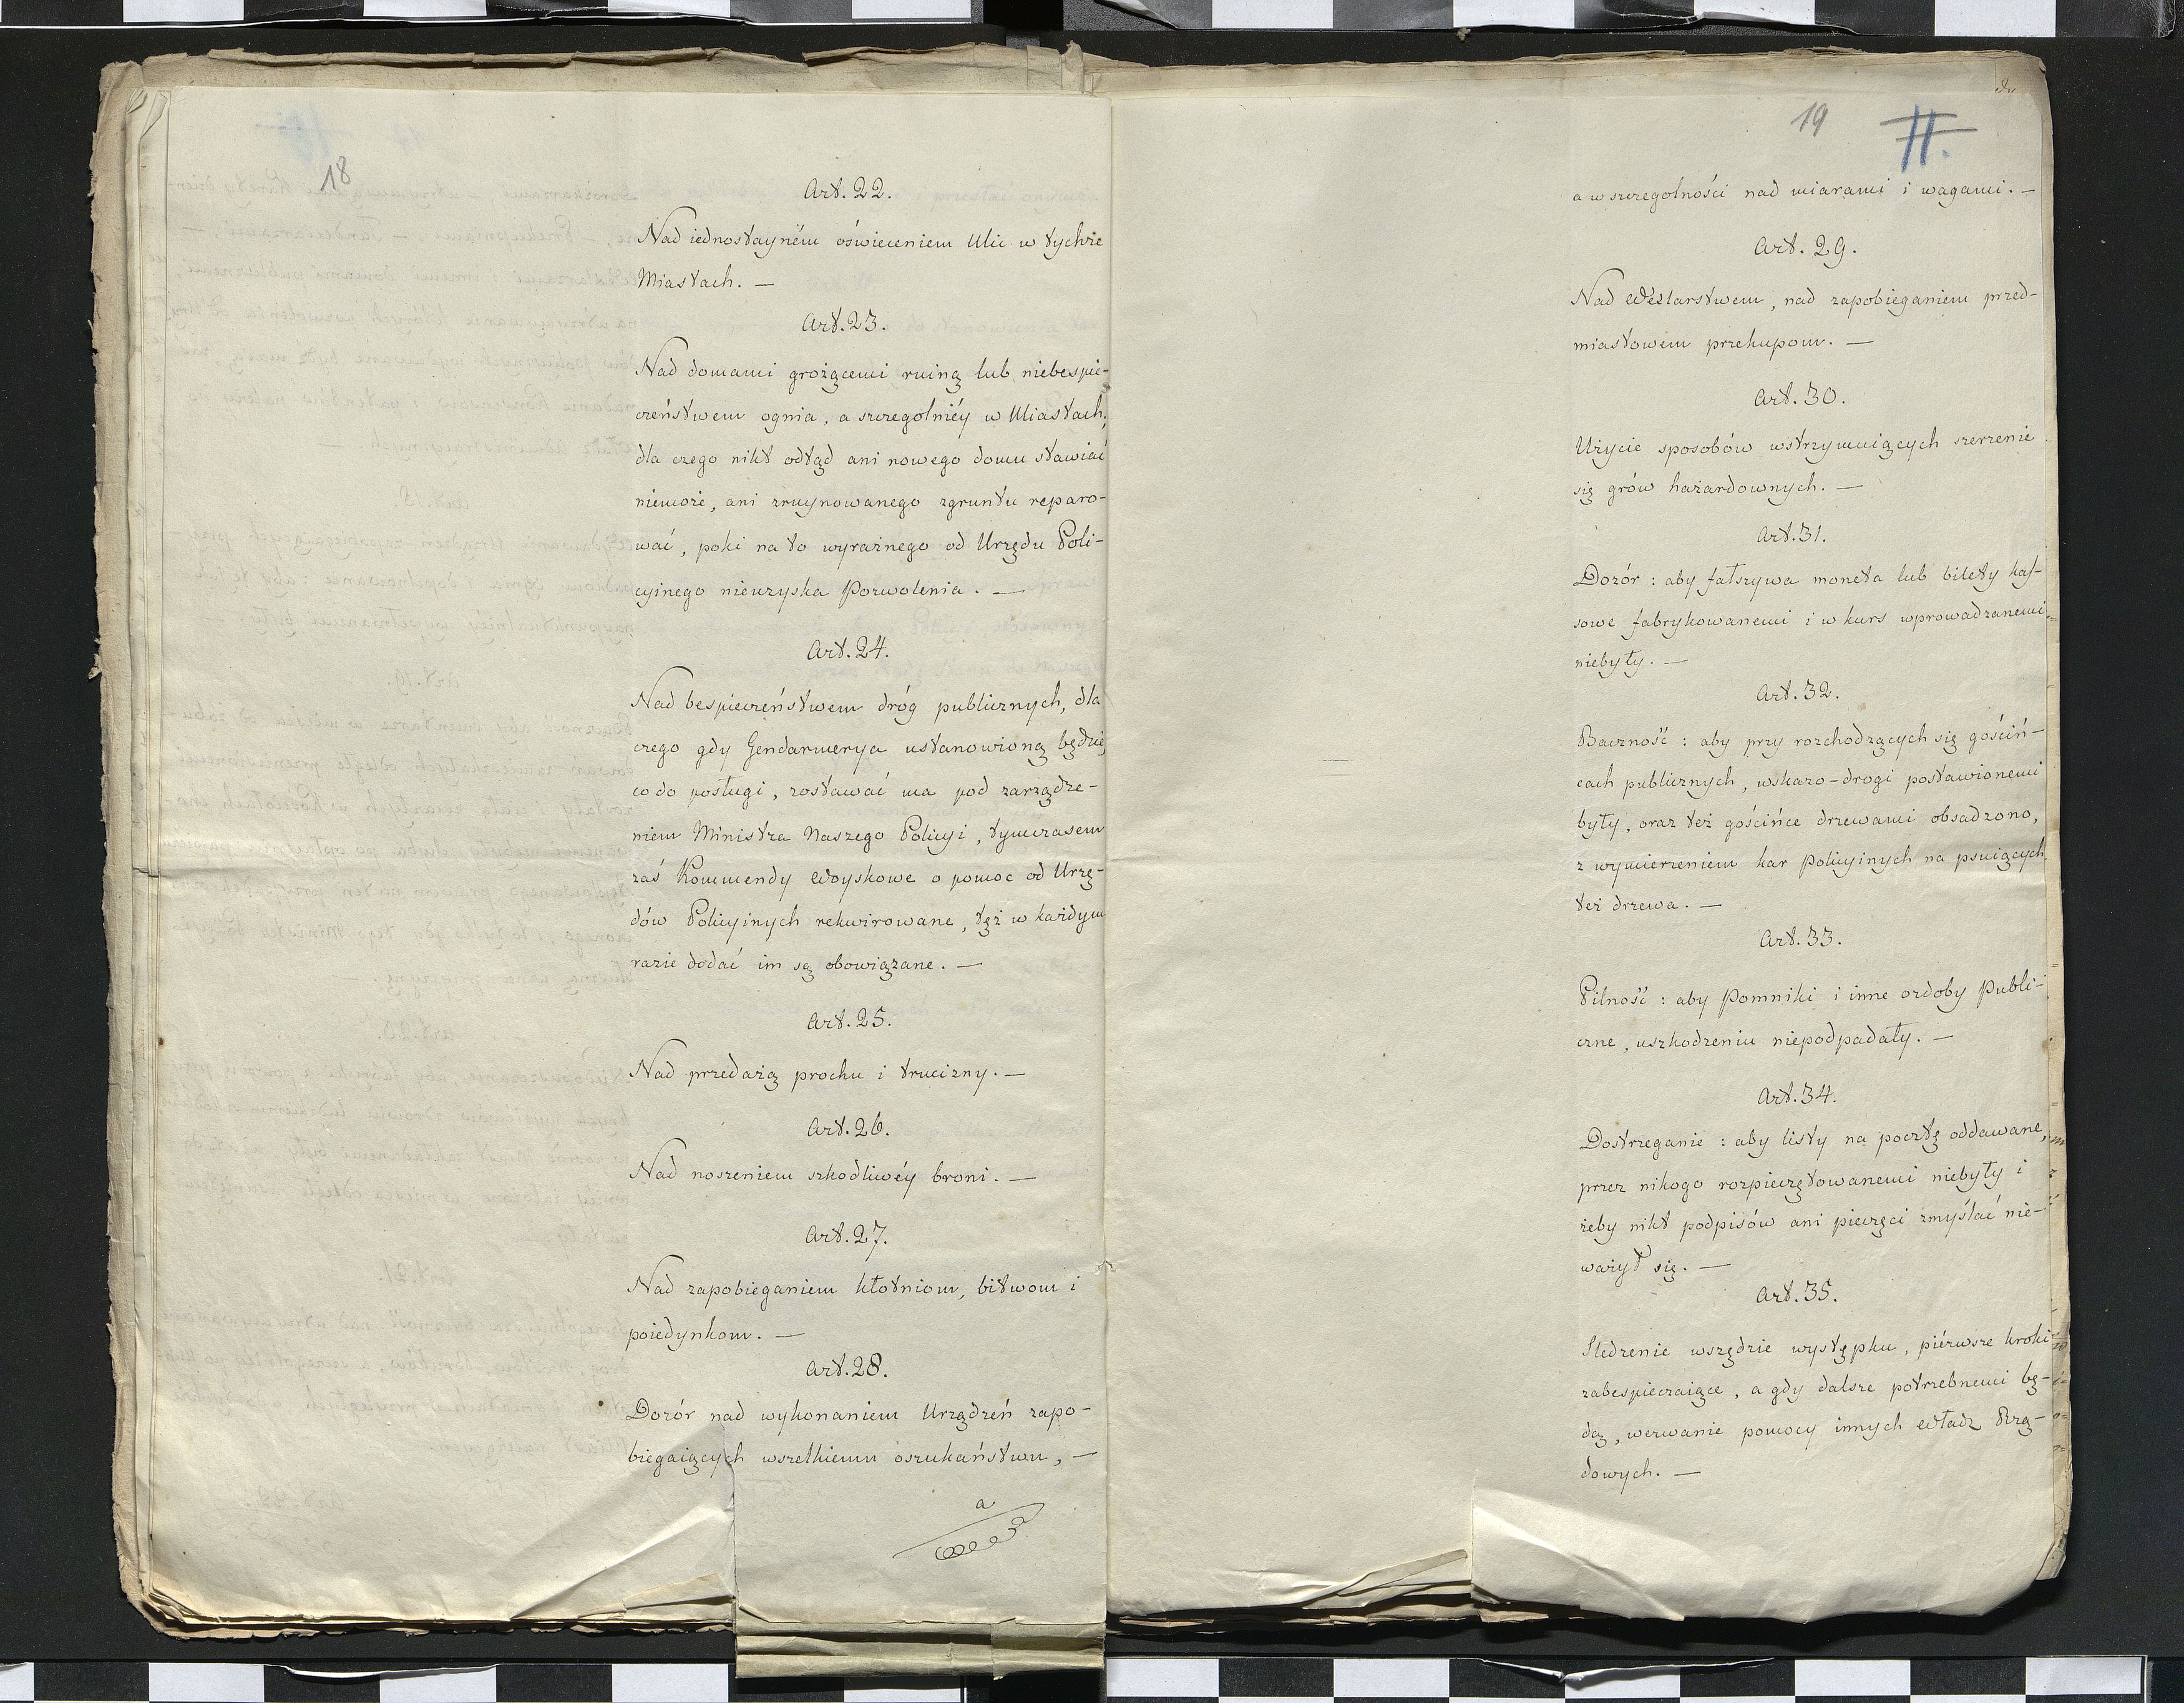 18
Art. 22.
Nad iednostayném oświeceniem Ulic w tychże
Miastach. —
Art. 23.
Nad domami grożącemi ruiną lub niebespie-
czeństwem ognia, a szczególniéy w Miastach,
dla czego nikt odtąd ani nowego domu stawiać
niemoże, ani zruynowanego zgruntu reparo-
wać, poki na to wyraźnego od Urzędu Poli-
cyinego nieuzyska Pozwolenia. —
Art. 24.
Nad bespieczeństwem dróg publicznych, dla
czego gdy Gendarmerya ustanowioną będzie,
co do posługi, zostawać ma pod zarządze-
niem Ministra Naszego Policyi, tymczasem
zaś Kommendy Woyskowe o pomoc od Urzę-
dów Policyinych rekwirowane, tęż w każdym
razie dodać im są obowiązane. —
Art. 25.
Nad przedażą prochu i trucizny. —
Art. 26.
Nad noszeniem szkodliwéy broni. —
Art. 27.
Nad zapobieganiem kłotniom, bitwom i
poiedynkom. —
Art. 28.
Dozór nad wykonaniem Urządzeń zapo-
biegaiących wszelkiemu oszukaństwu, —
a
19
11.
a w szczegolności nad miarami i wagami. —
Art. 29.
Nad Wexlarstwem, nad zapobieganiem przed-
miastowem przekupom. —
Art. 30.
Użycie sposobów wstrzymuiących szerzenie
się grów hazardownych. —
Art. 31.
Dozór : aby fałszywa moneta lub bilety kas-
sowe fabrykowanemi i w kurs wprowadzanemi
niebyły. —
Art. 32.
Baczność : aby przy rozchodzących się gościń-
cach publicznych, wskazo-drogi postawionemi
były, oraz też gościńce drzewami obsadzono,
z wymierzeniem kar Policyinych na psuiących
też drzewa. —
Art. 33.
Pilność : aby Pomniki i inne ozdoby Publi-
czne, uszkodzeniu niepodpadały. —
Art. 34.
Dostrzeganie : aby listy na pocztę oddawane,
przez nikogo rozpieczętowanemi niebyły i
żeby nikt podpisów ani pieczęci zmyślać nie-
ważył się. —
Art. 35.
Sledzenie wszędzie występku, piérwsze kroki
zabespieczaiące, a gdy dalsze potrzebnemi bę-
dą, wezwanie pomocy innych Władz Rzą-
dowych. —